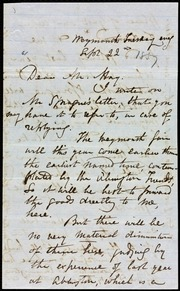 Weymouth Tuesday evg
Sept. 22ᵈ 1857
Dear Mr. May.
I write on
Mr Sprague's letter, that you
may have it to refer to, in case of
replying.
The Weymouth fair
will this year come earlier than
the earliest named time
by the Abington
So it will be best to forward
the goods directly to me
here.
But there will be
no very material diminution
of them here, judging by
the experience of last year
at Abington, which is a